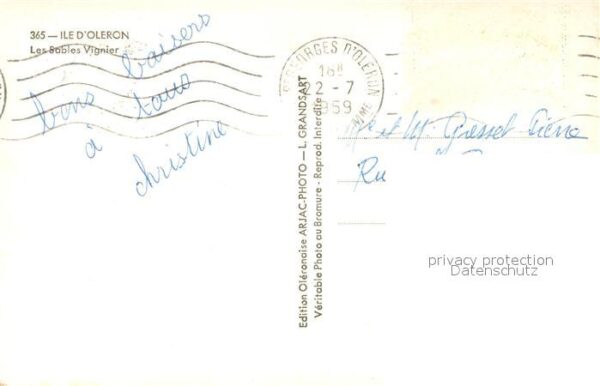 365 — ILE D'OLERON
Les Sables Vignier
bons baisers
à tous
christine
Edition Oléronaise ARJAC-PHOTO — L. GRANDSART
Véritable Photo au Bromure - Reprod. Interdite
ST GEORGES D'OLERON
18H
2-7
1959
et M Gresset Pierre
Ru
privacy protection
Datenschutz